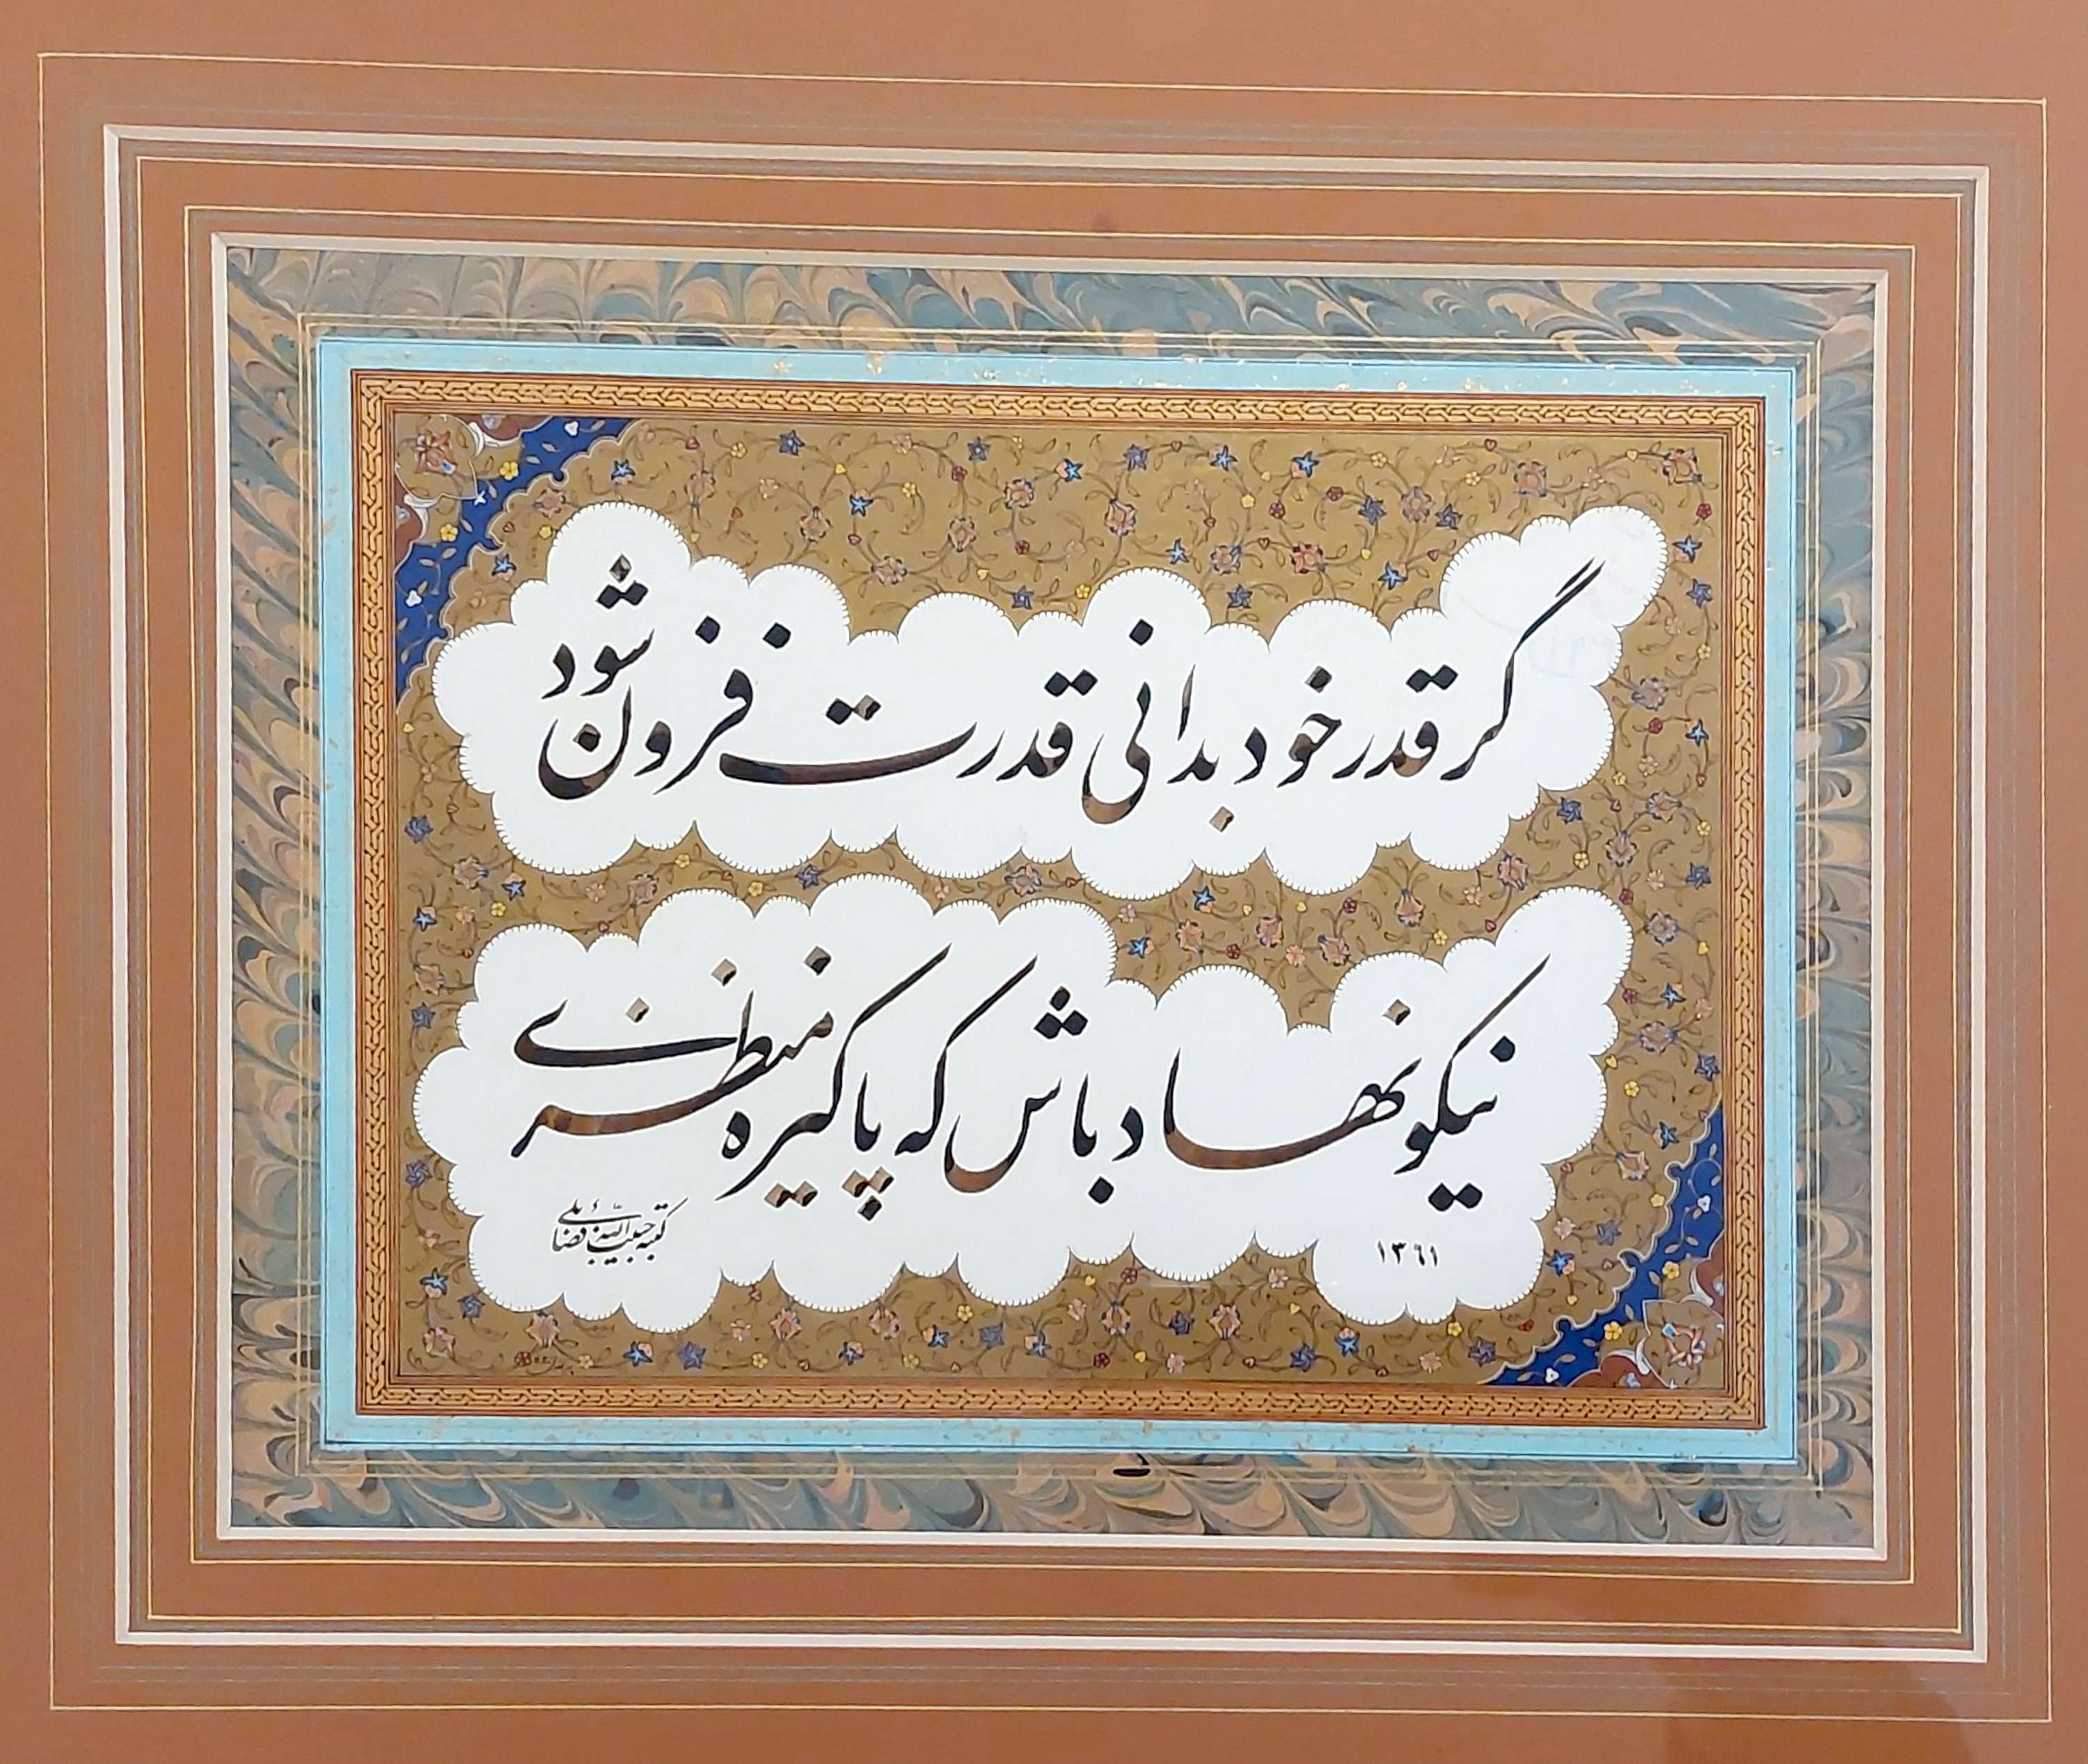 گر قدر خود بدانی قدرت فزون شود
نیکو نهاد باش که پاکیزه منظری
کتبه حبیب الله فضائلی
۱۳۶۱